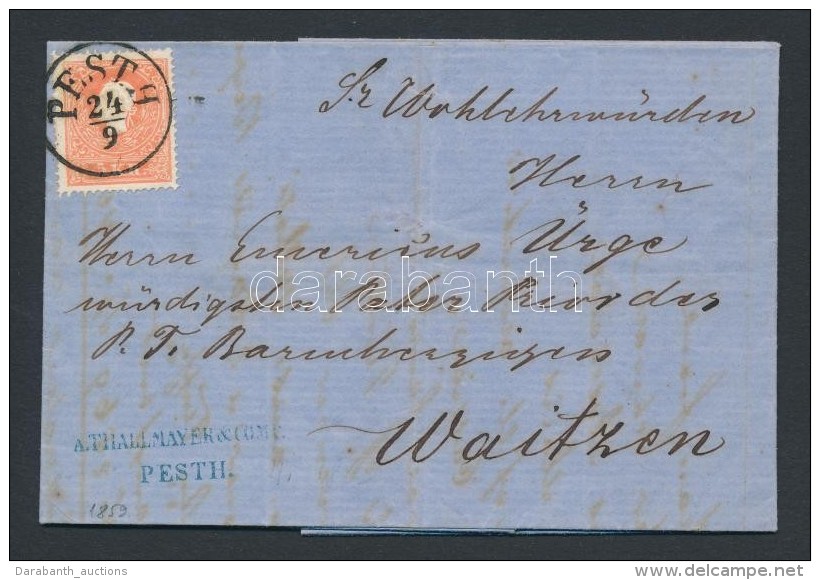 PESTH
24
9
Sr Wohlehrwürden
Herrn
Herrn Emericus Ürge
würdigsten Pater Prior der
P. T. Barmherzigen
Waitzen
A. THALLMAYER & COMP.
PESTH.
1859
darabanth
Darabanth_auctions
www.delcampe.net